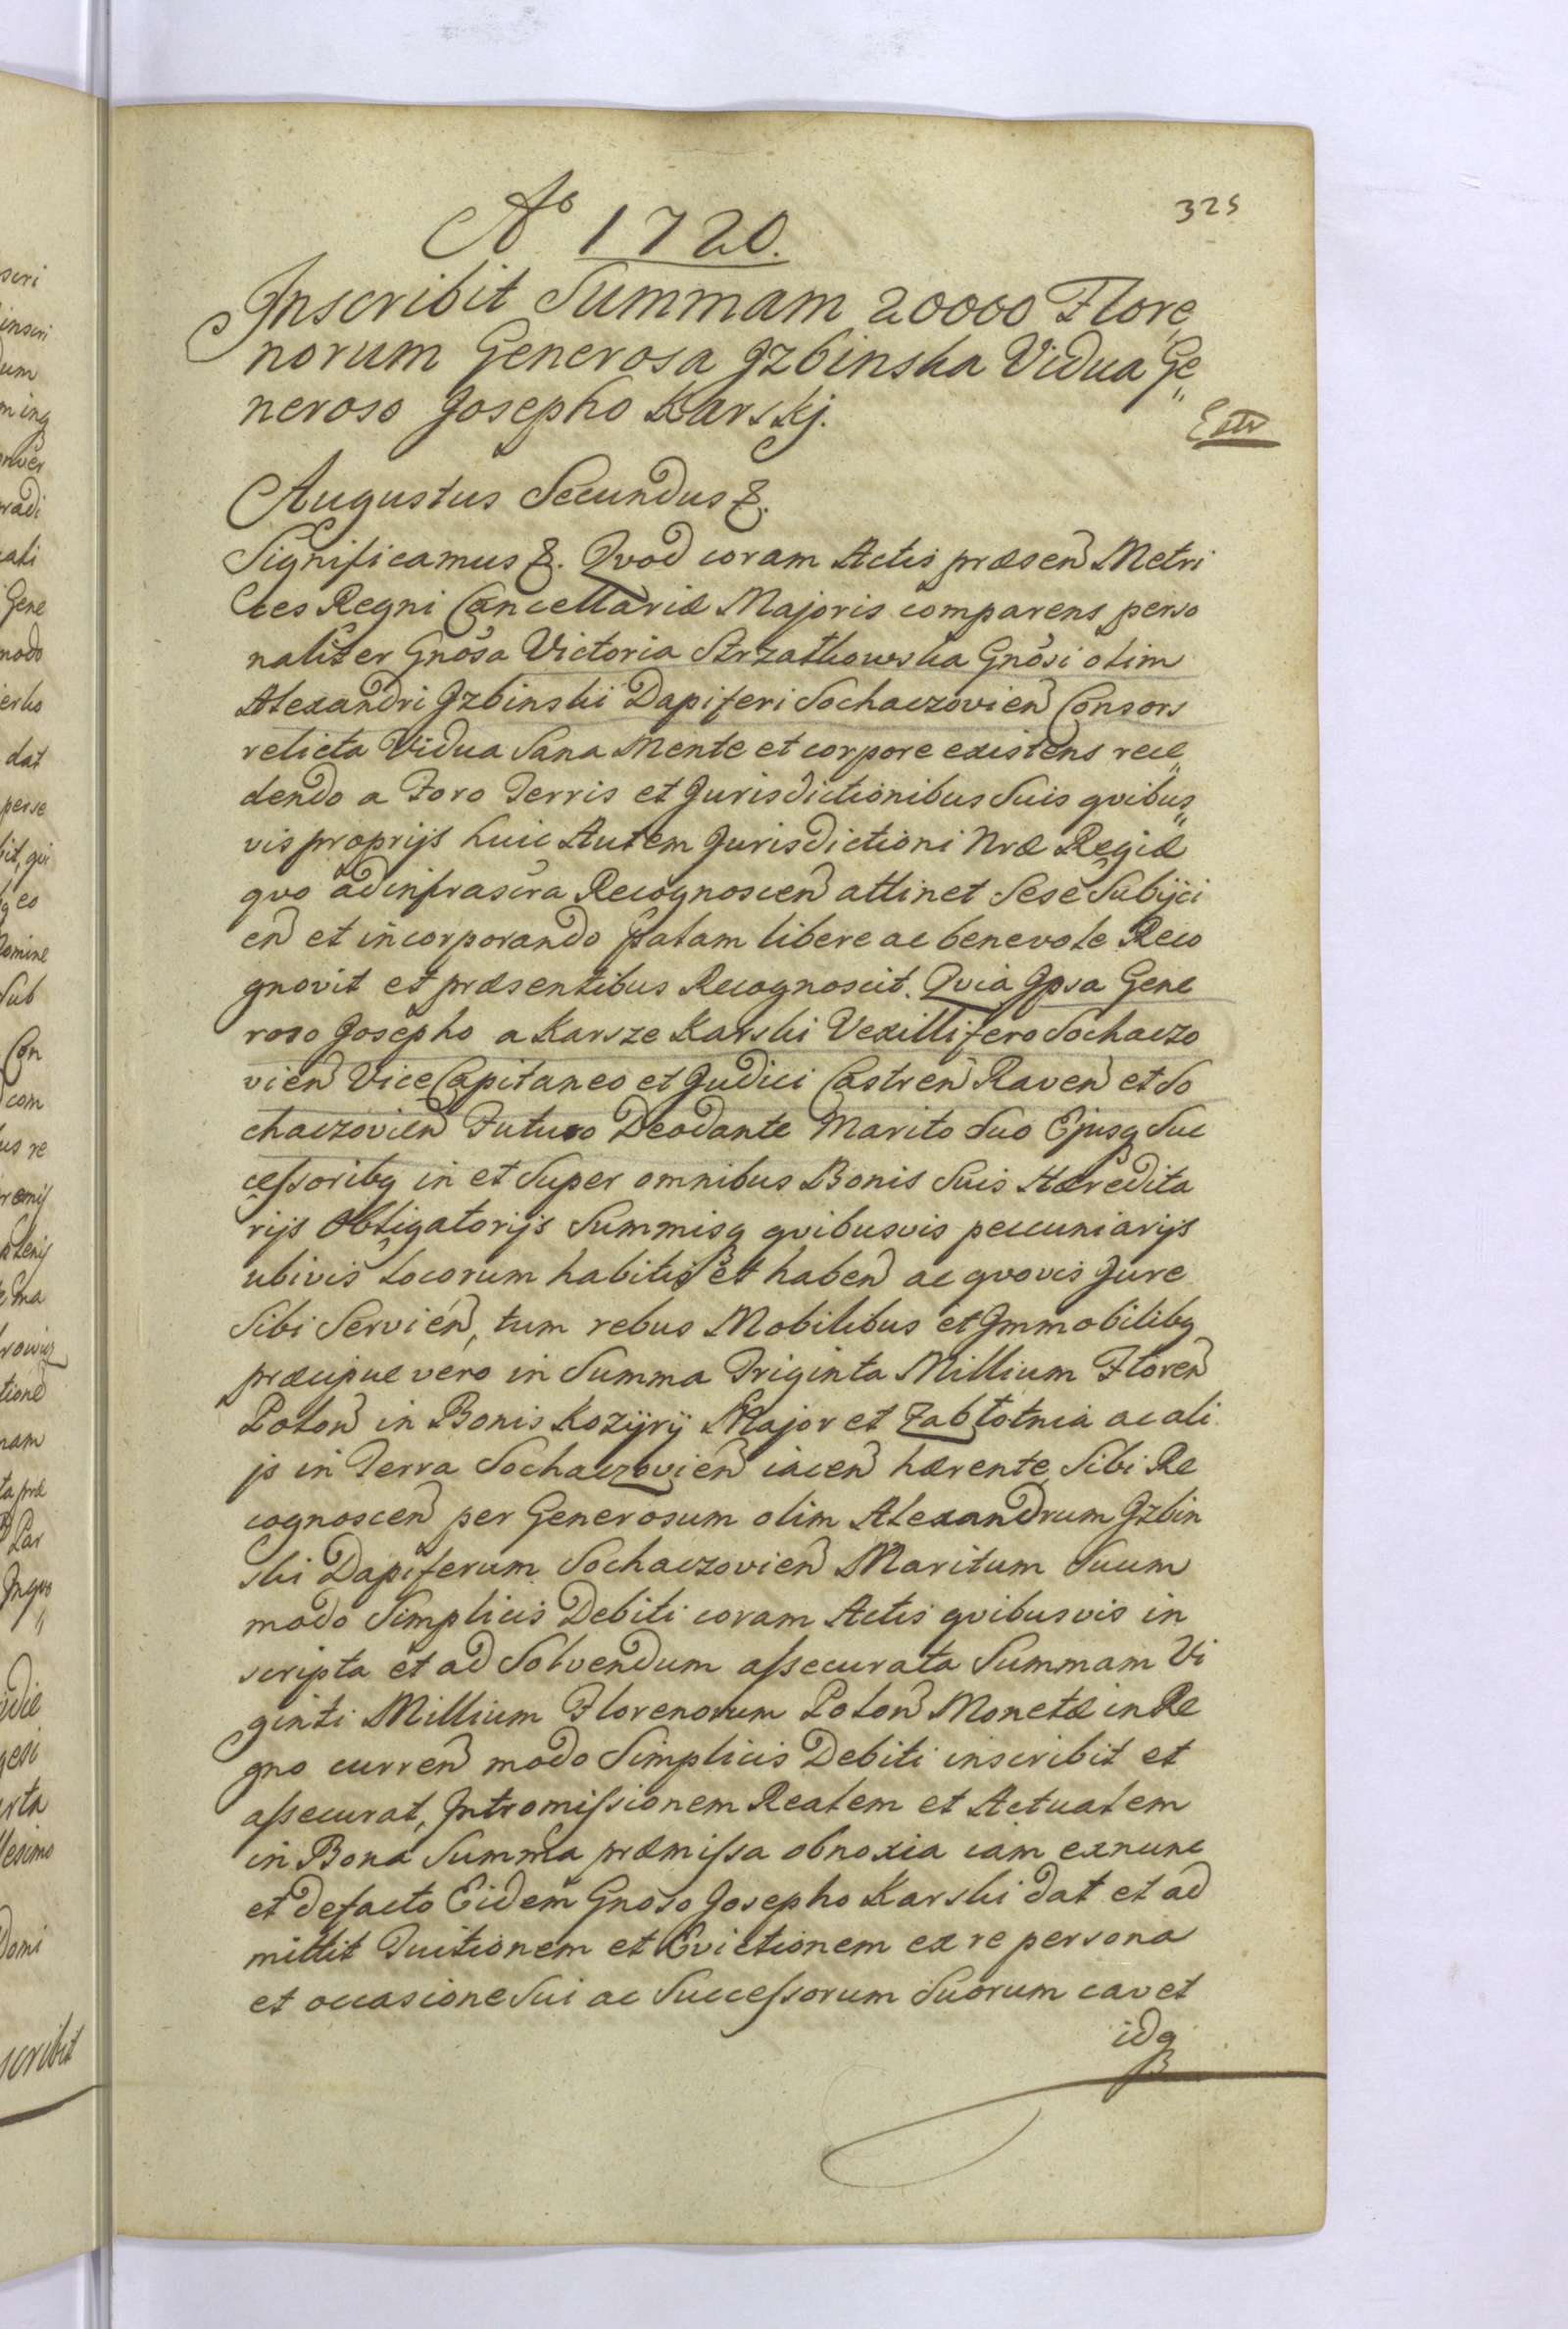 325
Ao 1720.
Inscribit Summam 20000 Flore„
norum Generosa Jzbinska Vidua Ge„
neroso Josepho Karskj.
Augustus Secundus &.
Significamus &. Qvod coram Actis præsen Metri
ces Regni Cancellariæ Majoris comparens perso
naliter Gnosa Victoria Strzałkowska Gnosi olim
Alexandri Jzbinski Dapiferi Sochaczovien Consors
relicta Vidua Sana Mente et corpore existens rece„
dendo a Foro Terris et Jurisdictionibus Suis qvibus„
vis proprijs huic Autem Jurisdictioni Nræ Regiæ
qvo ad infrascra Recognoscen attinet Sese Subijci
en et incorporando palam libere ac benevole Reco
gnovit et præsentibus Recognoscit. Qvia Jpsa Gene
roso Josepho a Karsze Karski Vexillifero Sochaczo
vien Vice Capitaneo et Judici Castren Raven et So
chaczovien Futuro Deodante Marito Suo Ejusq Suc
cessoribq in et Super omnibus Bonis Suis Hæredita
rijs Obligatorijs Summisq qvibusvis peccuniarijs
ubivis Locorum habitis et haben ac qvovis Jure
Sibi Servien, tum rebus Mobilibus et Jmmobilibq
præcipue vero in Summa Triginta Millium Floren
Polon in Bonis Kozÿrÿ Major et Zabłotnia ac ali
js in Terra Sochaczovien iacen hærente, Sibi Re
cognoscen per Generosum olim Alexandrum Jzbin
ski Dapiferum Sochaczovien Maritum Suum
modo Simplicis Debiti coram Actis qvibusvis in
scripta et ad Solvendum assecurata Summam Vi
ginti Millium Florenorum Polon Monetæ in Re
gno curren modo Simplicis Debiti inscribit et
assecurat, Jntromissionem Realem et Actualem
in Bona Summa præmissa obnoxia iam exnunc
et defacto Eidem Gnoso Josepho Karski dat et ad
mittit Tuitionem et Evictionem ex re persona
et occasione Sui ac Successorum Suorum cavet
idq